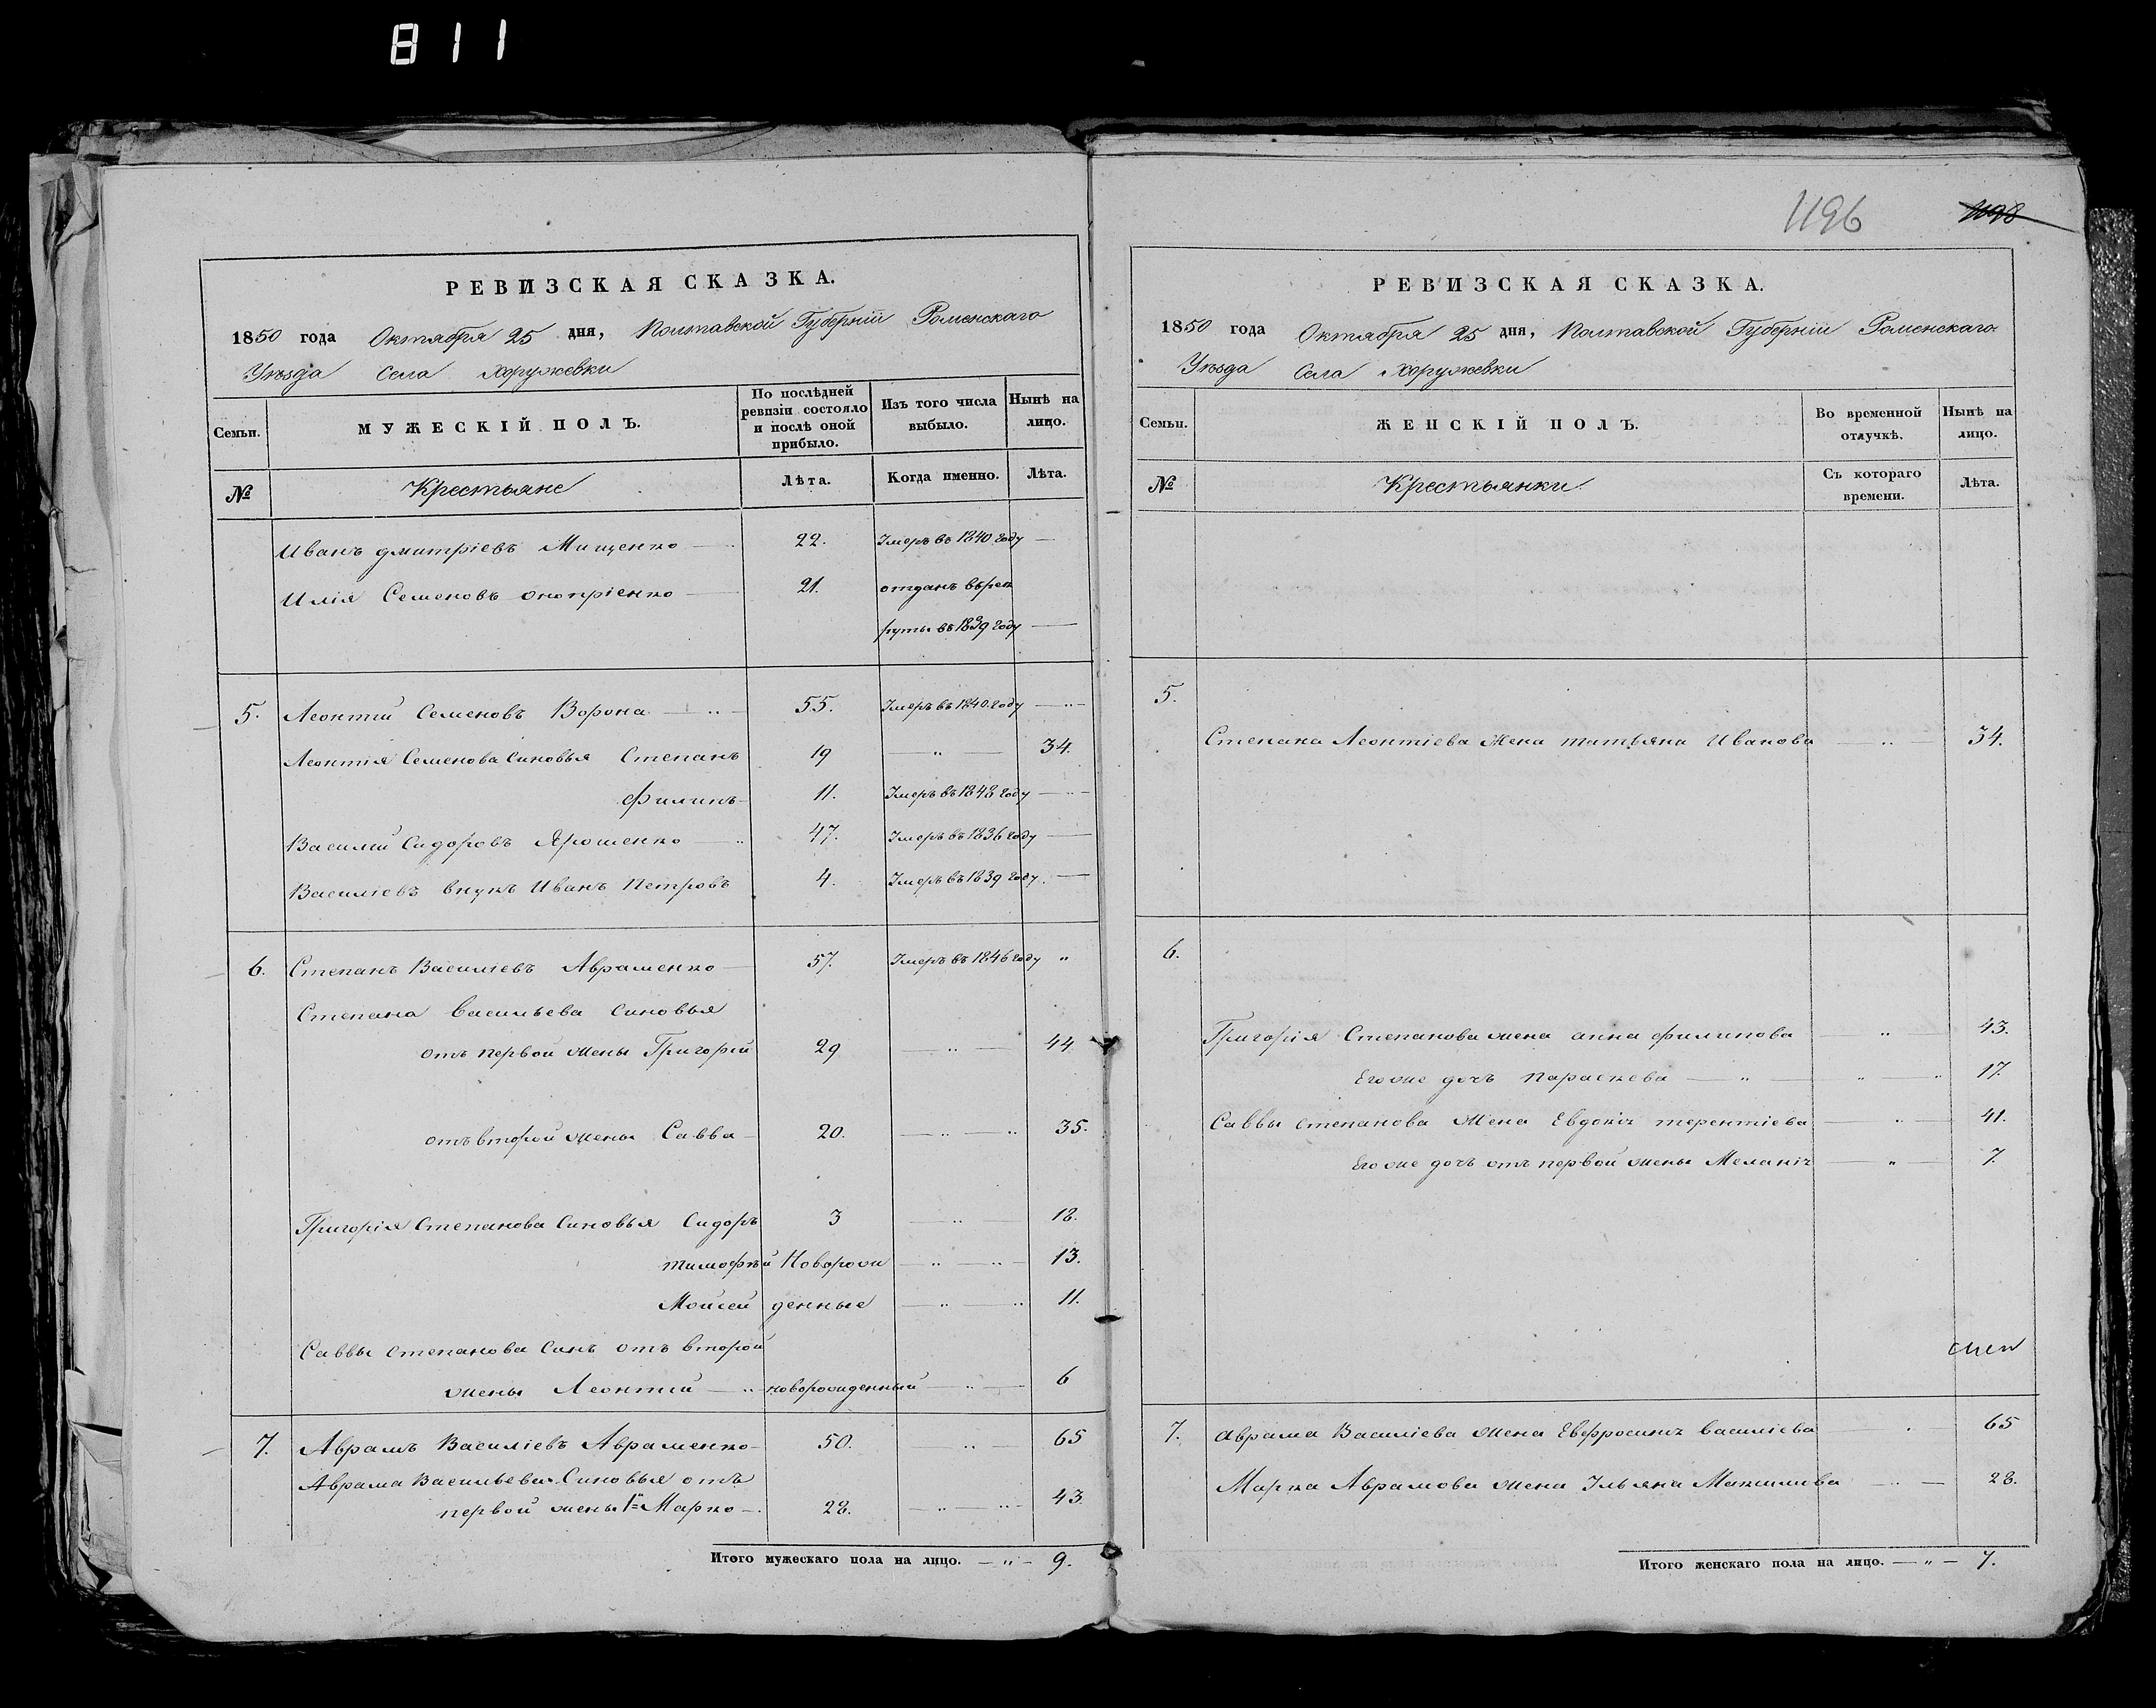 811
1196
1198
РЕВИЗСКАЯ СКАЗКА.
1850 года Октября 25 дня, Полтавской Губерніи Роменскаго
Уѣзда Села Хоружевки
Семьи.
МУЖЕСКІЙ ПОЛЪ.
По послѣдней ревизіи состояло и послѣ оной прибыло.
Изъ того числа выбыло.
Нынѣ на лицо.
№ Крестьяне Лѣта. Когда именно. Лѣта.
Иванъ Дмитріевъ Мищенко 22. Умеръ въ 1840 году —
Илія Семеновъ Оноприенко 21. отданъ врек
руты въ 1839 году —
5. Леонтій Семеновъ Ворона — „ — 55. Умеръ въ 1840 году — „ —
Леонтія Семенова Синовья Степанъ 19 — „ — 34.
Филипъ 11. Умеръ въ 1848 году — „ —
Василій Сидоровъ Ярошенко — „ 47. Умеръ въ 1836 году —
Василіевъ внукъ Иванъ Петровъ 4. Умеръ въ 1839 году. —
6. Степанъ Василіевъ Авраменко 57. Умеръ въ 1846 году „
Степана Васильева Синовья
отъ первой жены Григорій 29 — „ — 44.
отъ второй жены Савва 20. — „ — „ 35.
Григорія Степанова Синовья Сидоръ 3 — „ — 18.
Тимофѣй Новорож — „ — „ — 13.
Мойсей денные — „ — „ 11.
Саввы Степанова Синъ отъ второй
жены Леонтій — „ новорожденный — „ — 6
7. Аврамъ Василіевъ Авраменко 50. „ 65
Аврама Васильева Синовья отъ
первой жены 1й Марко —. 28. — „ — „ — 43.
Итого мужескаго пола на лицо. — „ — 9.
РЕВИЗСКАЯ СКАЗКА.
1850 года Октября 25 дня, Полтавской Губерніи Роменскаго
Уѣзда Села Хоружевки
Семьи.
ЖЕНСКІЙ ПОЛЪ.
Во временной отлучкѣ.
Нынѣ на лицо.
№ Крестьянки Съ котораго времени. Лѣта.
5.
Степана Леонтіева жена Татьяна Иванова — „ — 34.
6.
Григорія Степанова жена Анна Филипова — „ — 43.
Его же дочъ Параскева — „ — „ — „ 17.
Саввы Степанова жена Евдокія Терентіева — „ — 41.
Его же дочъ отъ первой жены Меланія — „ — 7.
7. Аврама Василіева жена Евфросинія Василіева . 65
Марка Аврамова жена Ульяна Максимова — „ — 28.
Итого женскаго пола на лицо. — „ — 7.